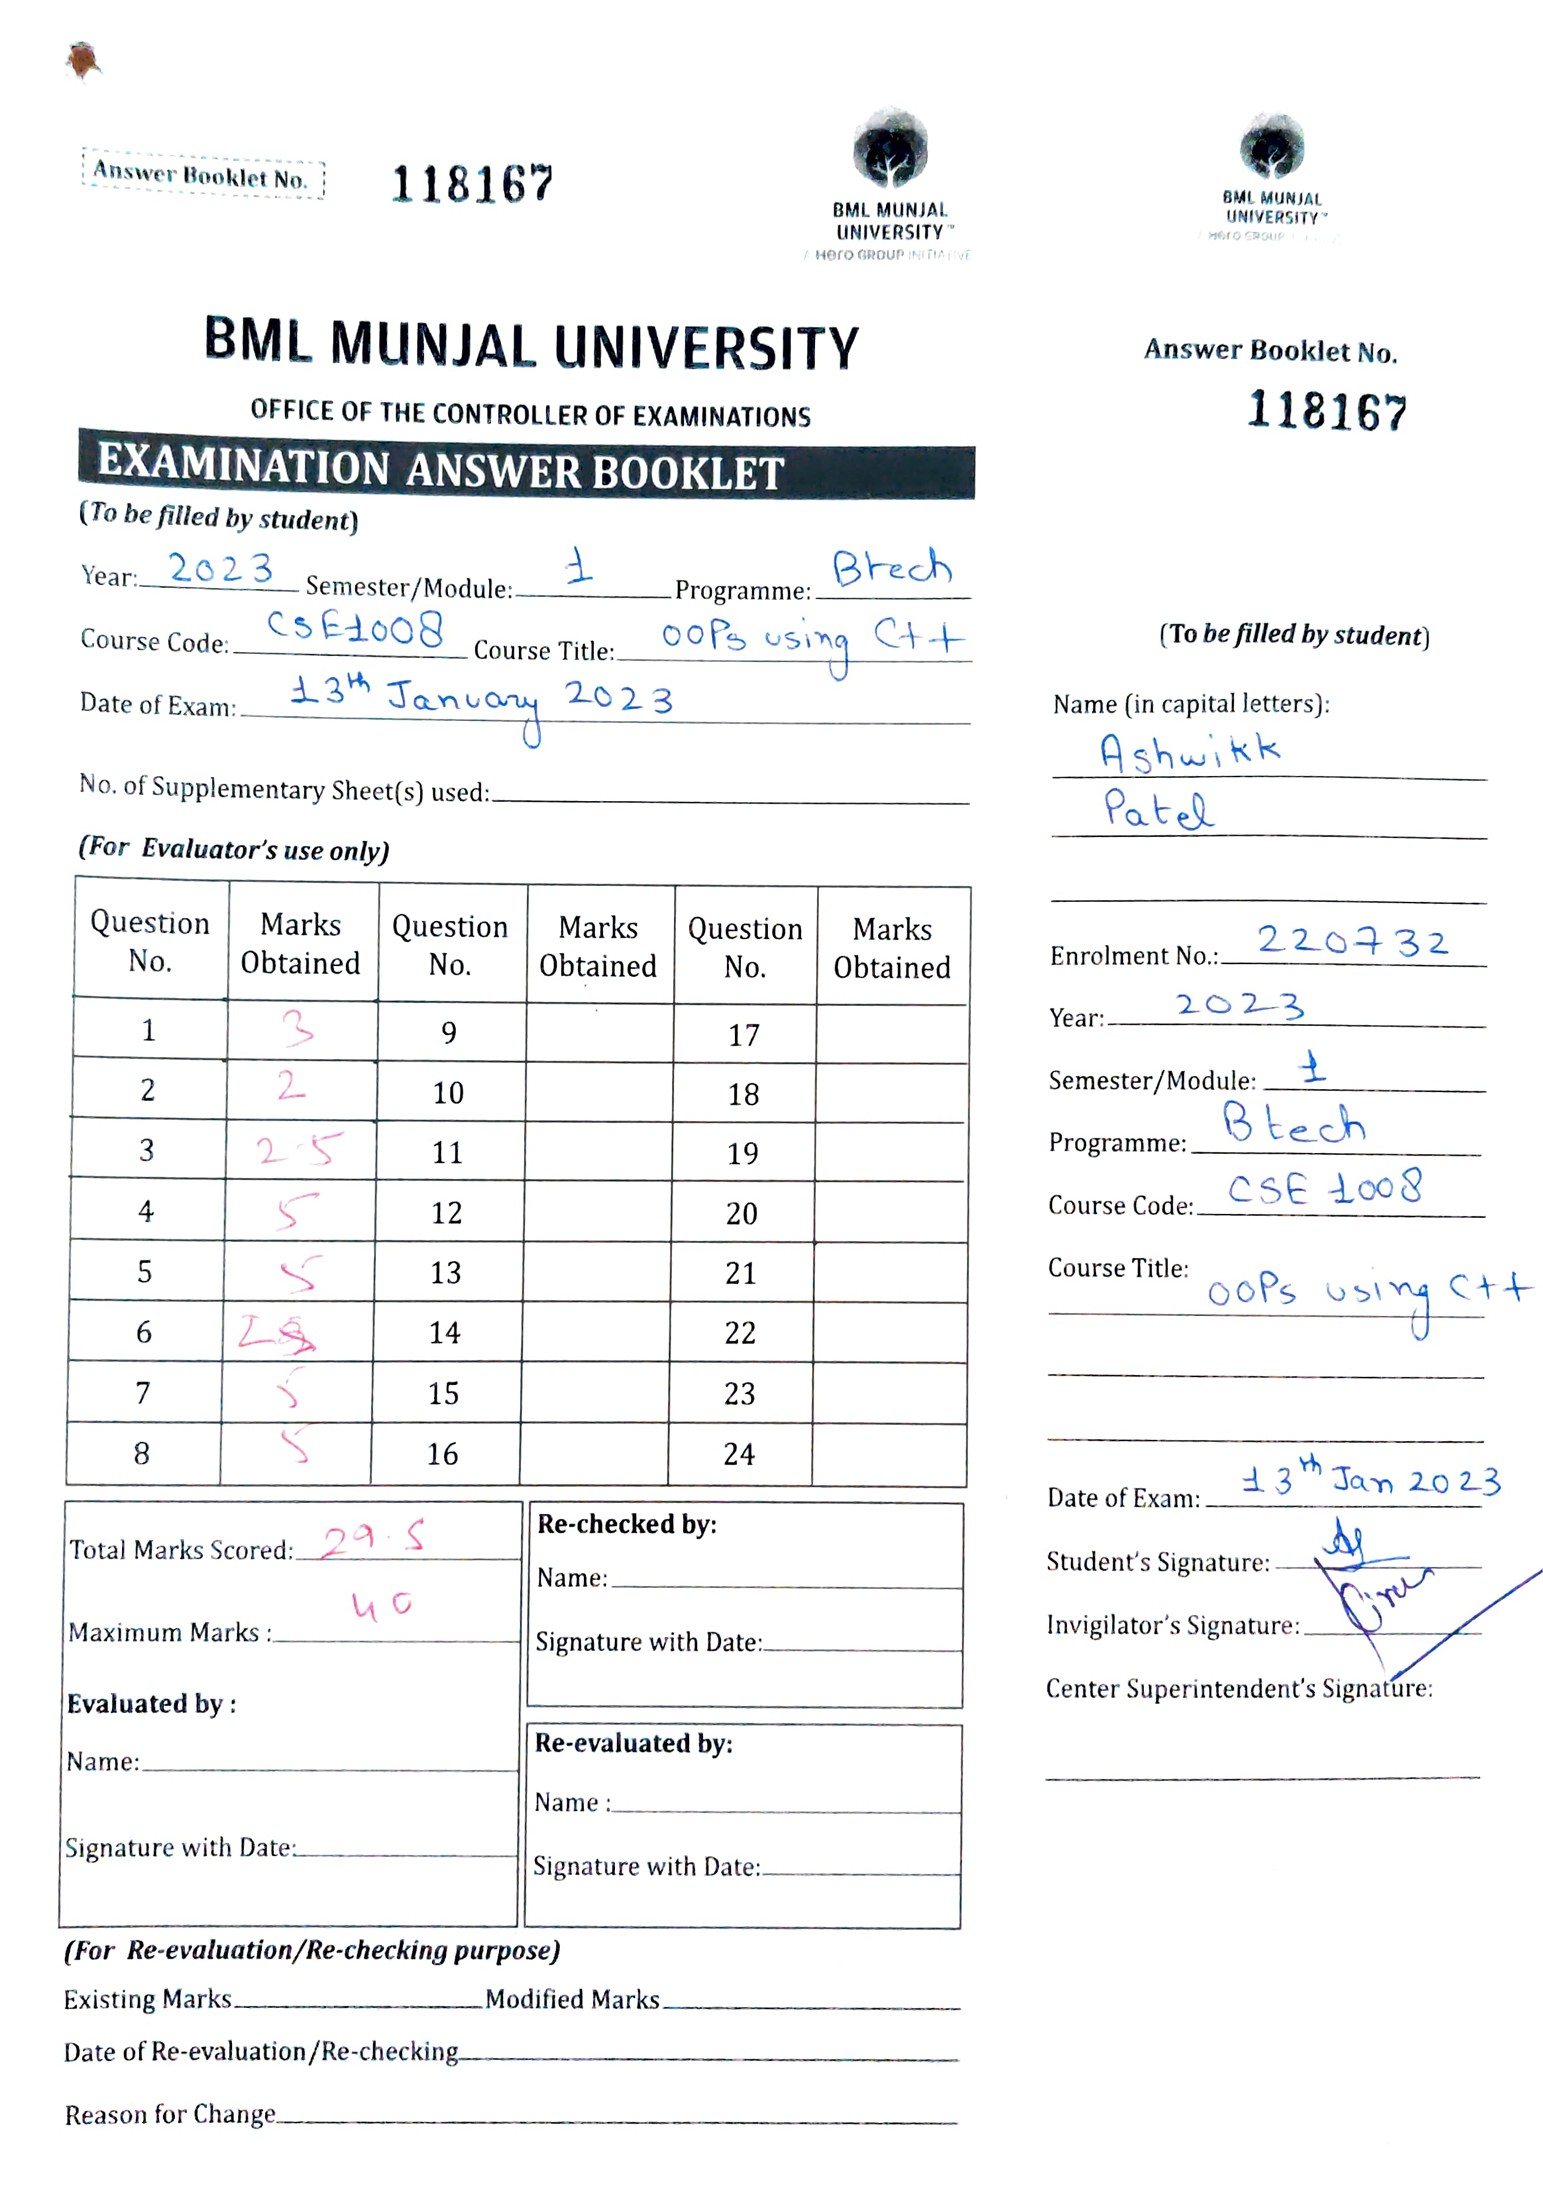 Answer Booklet No. 118167
BML MUNJAL
UNIVERSITY™
A Hero GROUP INITIATIVE
BML MUNJAL UNIVERSITY
OFFICE OF THE CONTROLLER OF EXAMINATIONS
EXAMINATION ANSWER BOOKLET
(To be filled by student)
Year: 2023 Semester/Module: 1 Programme: Btech
Course Code: CSE1008 Course Title: OOPs using C++
Date of Exam: 13th January 2023
No. of Supplementary Sheet(s) used:
(For Evaluator's use only)
Question No. Marks Obtained Question No. Marks Obtained Question No. Marks Obtained
1 3 9 17
2 2 10 18
3 2.5 11 19
4 5 12 20
5 5 13 21
6 14 22
7 5 15 23
8 5 16 24
Total Marks Scored: 29.5
Maximum Marks : 40
Evaluated by :
Name:
Signature with Date:
Re-checked by:
Name:
Signature with Date:
Re-evaluated by:
Name :
Signature with Date:
(For Re-evaluation/Re-checking purpose)
Existing Marks Modified Marks
Date of Re-evaluation/Re-checking
Reason for Change
BML MUNJAL
UNIVERSITY™
A Hero GROUP
Answer Booklet No.
118167
(To be filled by student)
Name (in capital letters):
Ashwikk
Patel
Enrolment No.: 220732
Year: 2023
Semester/Module: 1
Programme: Btech
Course Code: CSE 1008
Course Title: OOPs using C++
Date of Exam: 13th Jan 2023
Student's Signature:
Invigilator's Signature:
Center Superintendent's Signature: